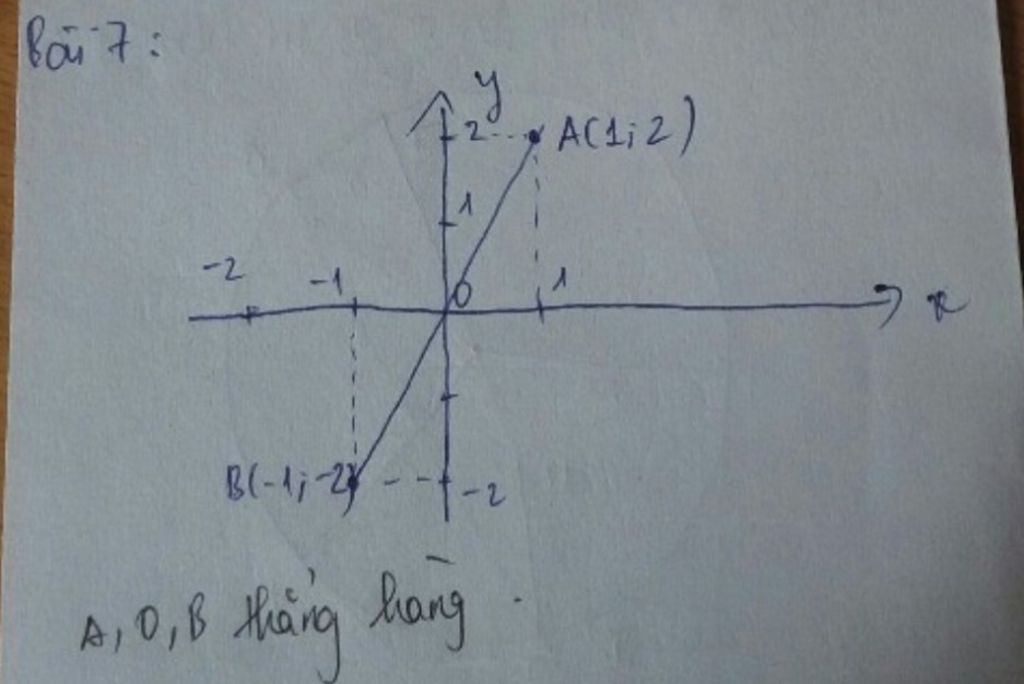 Bài 7:
y
2 A(1; 2)
1
-2 -1 0 1 x
B(-1; -2) -2
A, O, B thẳng hàng.